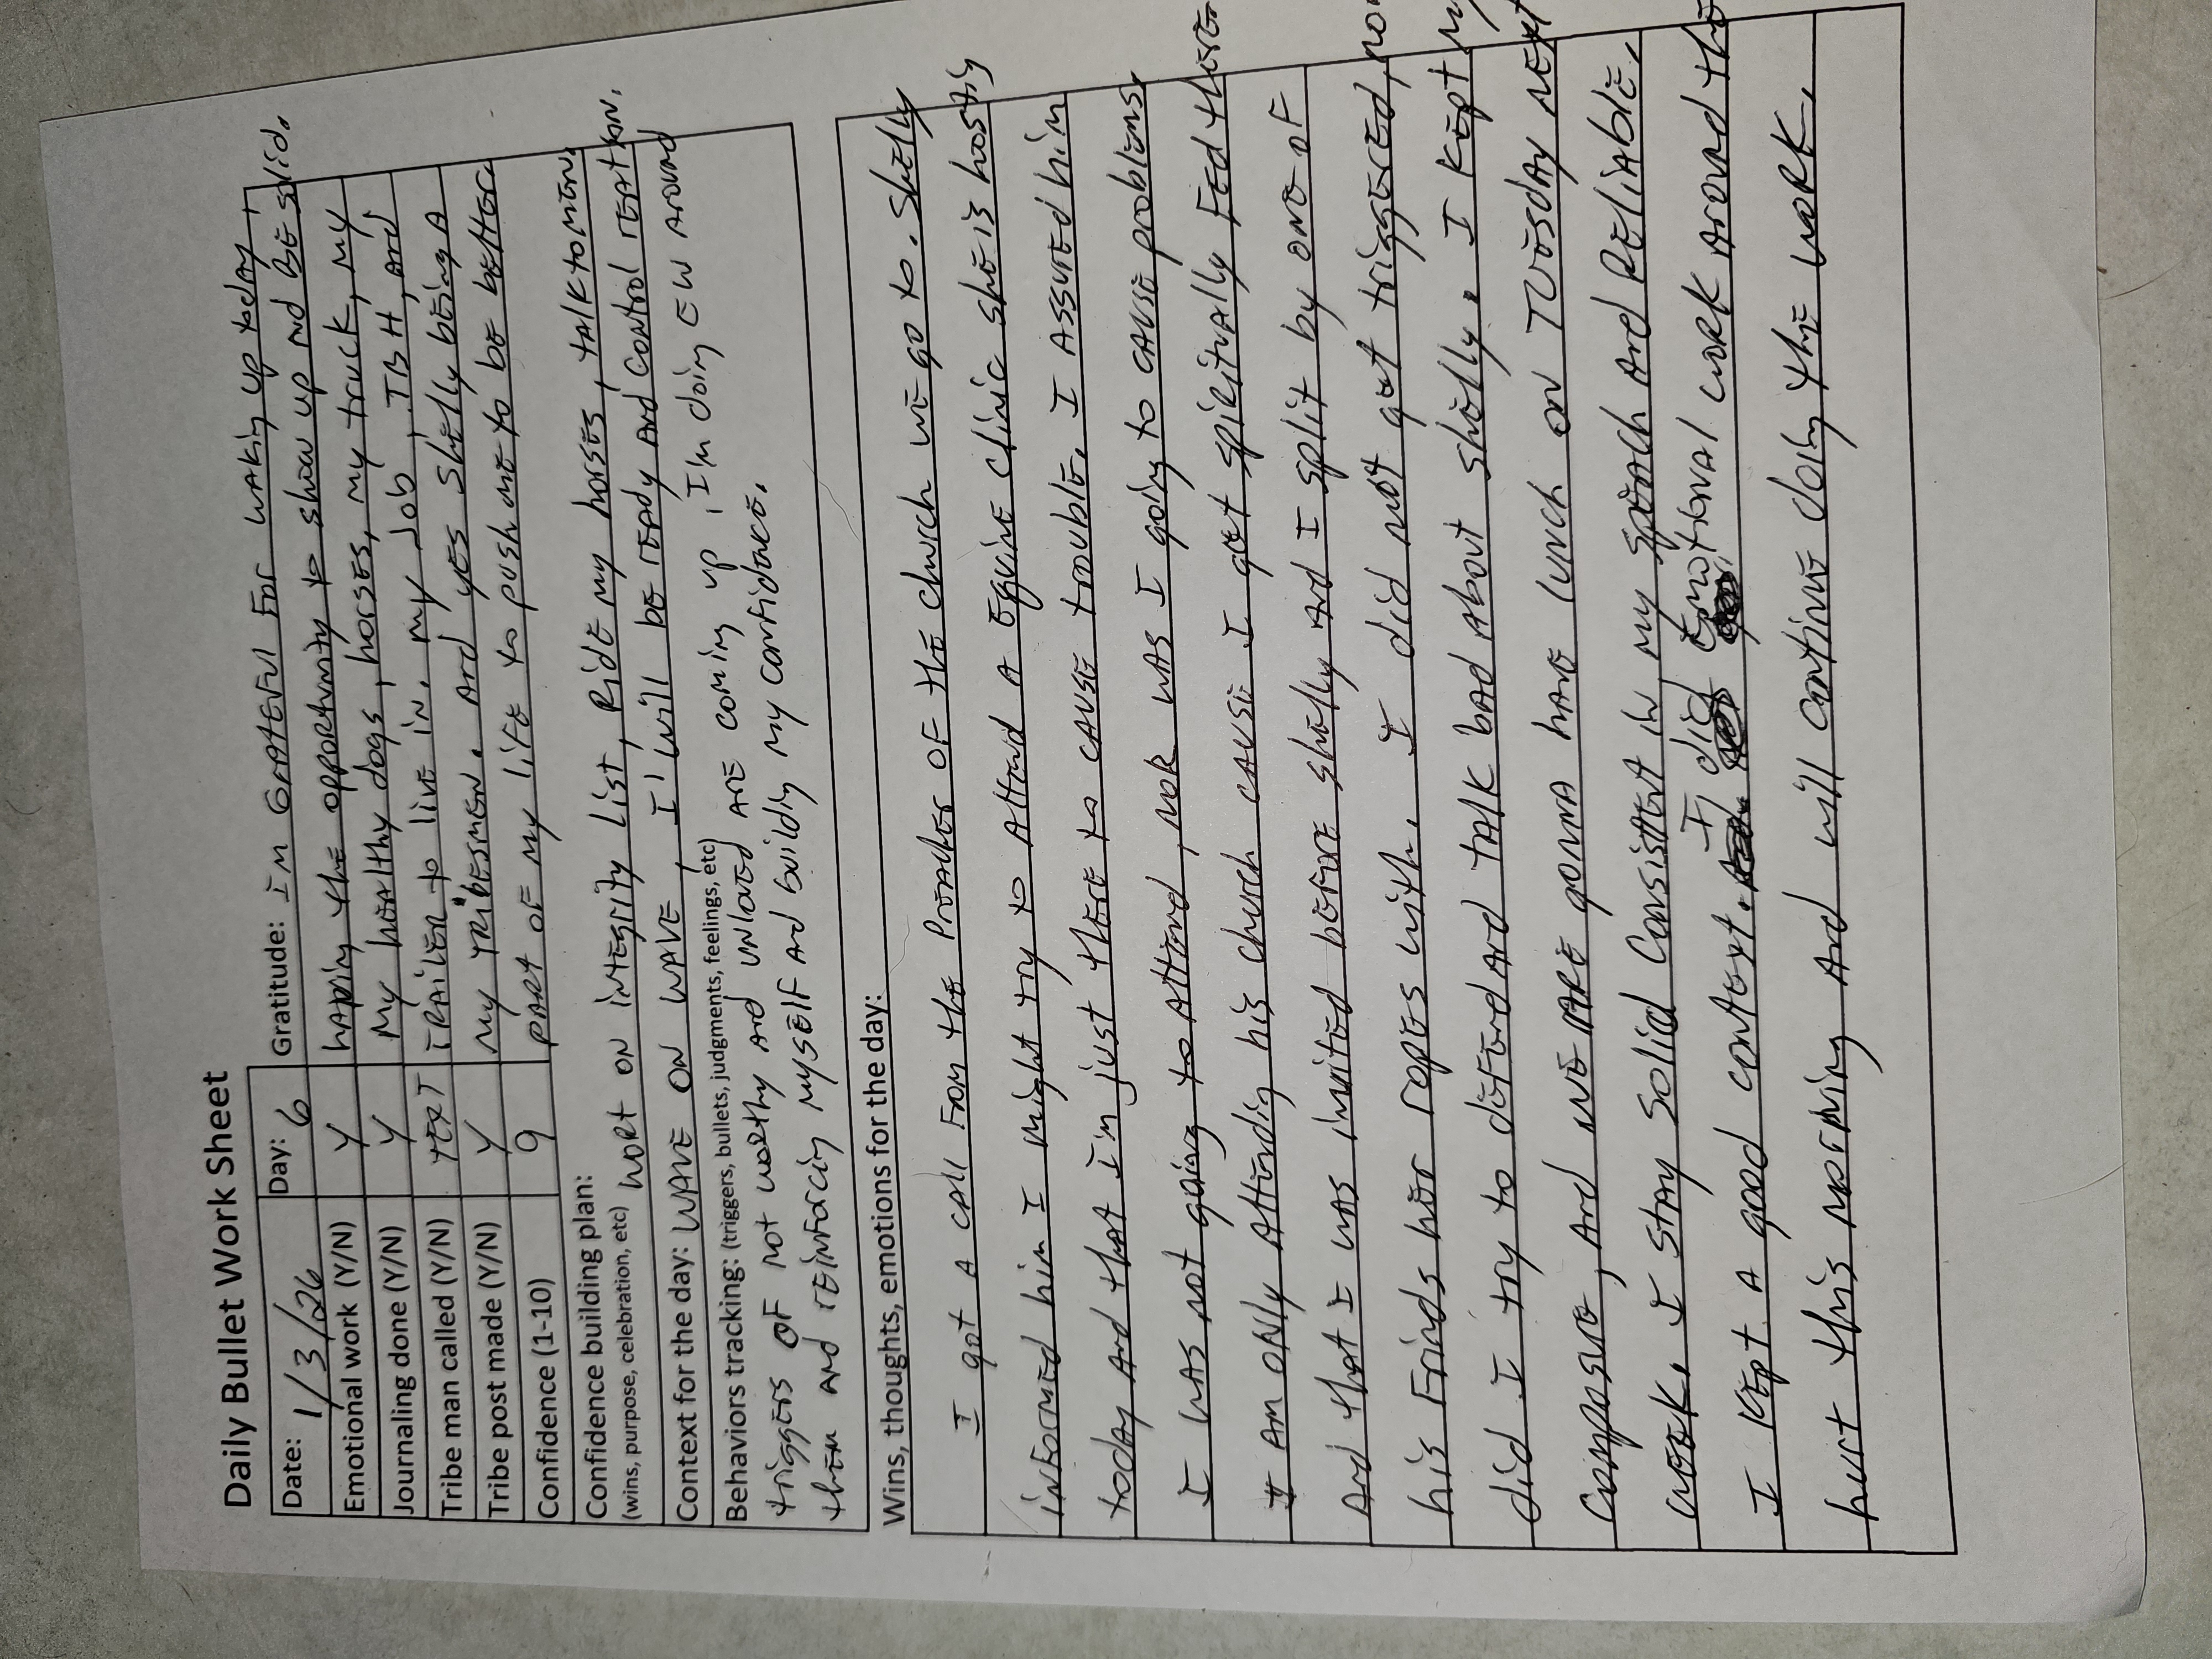 Daily Bullet Work Sheet
Date: 1/3/26 Day: 6 Gratitude: I'm GrATEFUL For WAKING up today,
Emotional work (Y/N) Y HAVING the opportunity to show up and BE solid.
Journaling done (Y/N) Y My HEALTHY dogs, horses, my truck, my
Tribe man called (Y/N) TEXT TRAILER to live in. my Job, TBH, And
Tribe post made (Y/N) Y My TRIBESMEN. And YES Shelly being A
Confidence (1-10) 9 PART OF my life to push me to be better.
Confidence building plan:
(wins, purpose, celebration, etc) WORK ON INTEGRITY LIST, RIDE my horses, talk to men,
Context for the day: WAVE ON WAVE, I will BE rEADY And control rEATION.
Behaviors tracking: (triggers, bullets, judgments, feelings, etc)
triggers OF NOT worthy And UNLOVED ArE coming up, I'm doing EW Around
them And rEINForcing MYSElF And building My confidence.
Wins, thoughts, emotions for the day:
I got A CALL From the PreACHER OF the church we go to. Shelly
INFORMED him I might try to Attend A Equine clinic she is hosting
today And that I'm just there to CAUSE trouble. I ASSURED him
I WAS not going to Attend, NOR WAS I going to CAUSE problems
I AM ONLY Attending his church CAUSE I get spiritually FED there
And that I WAS invited before shelly And I split by one OF
his Frinds her ropes with. I did not get triggered, nor
did I try to defend And TAlK bad About shelly. I KEpt my
Composure, And we ARE gonna HAVE lunch on TUESDAY NEXT
week. I stay Solid Consistent in my speach And RELIABLE.
I KEpt A good contExt. I did Emotional work Around the
hurt this morning And will continue doing the work.